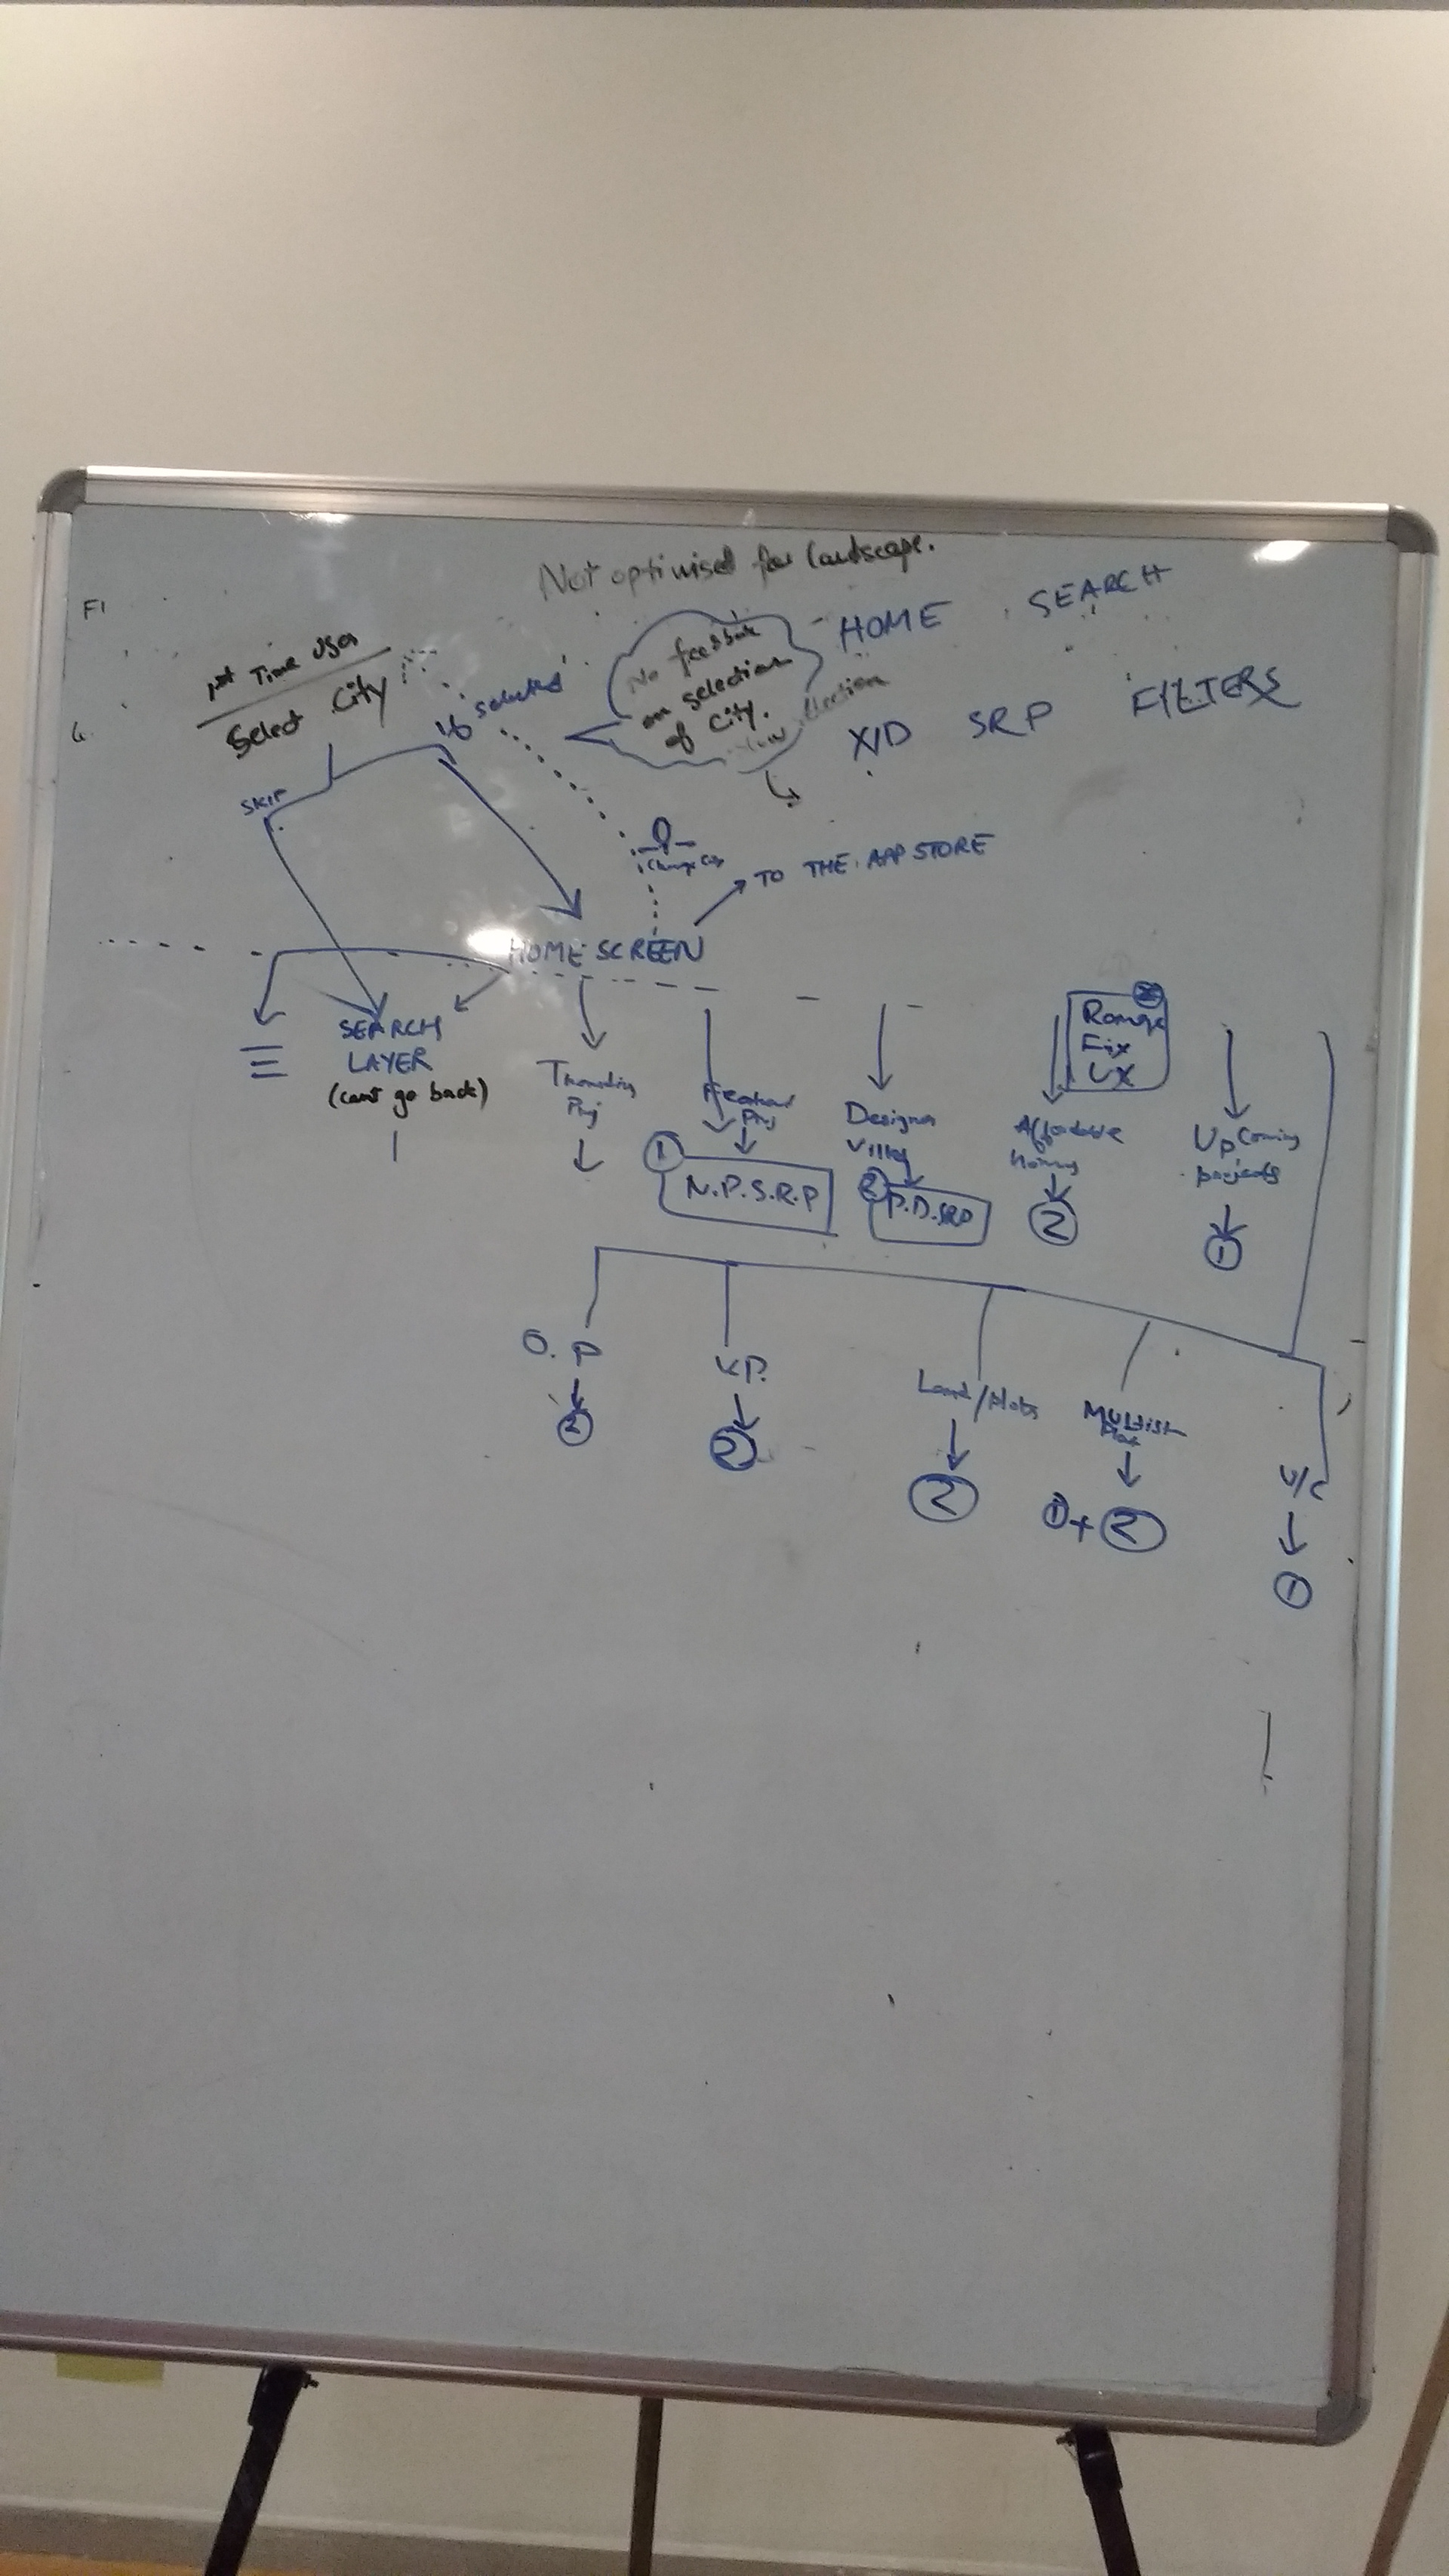 Not optimised for landscape.
F1
HOME SEARCH
1st Time User
Select City
If selected
No feedback
on selection
of City.
XID SRP FILTERS
SKIP
Change City
TO THE APP STORE
HOME SCREEN
SEARCH
LAYER
(can't go back)
Trending
Proj
Featured
Proj
1
N.P.S.R.P
Designer
Villas
2
P.D.SRP
Range
Fix
UX
Affordable
Homes
2
Upcoming
projects
1
O.P
2
K.P.
2
Land/Plots
2
1+2
U/C
1